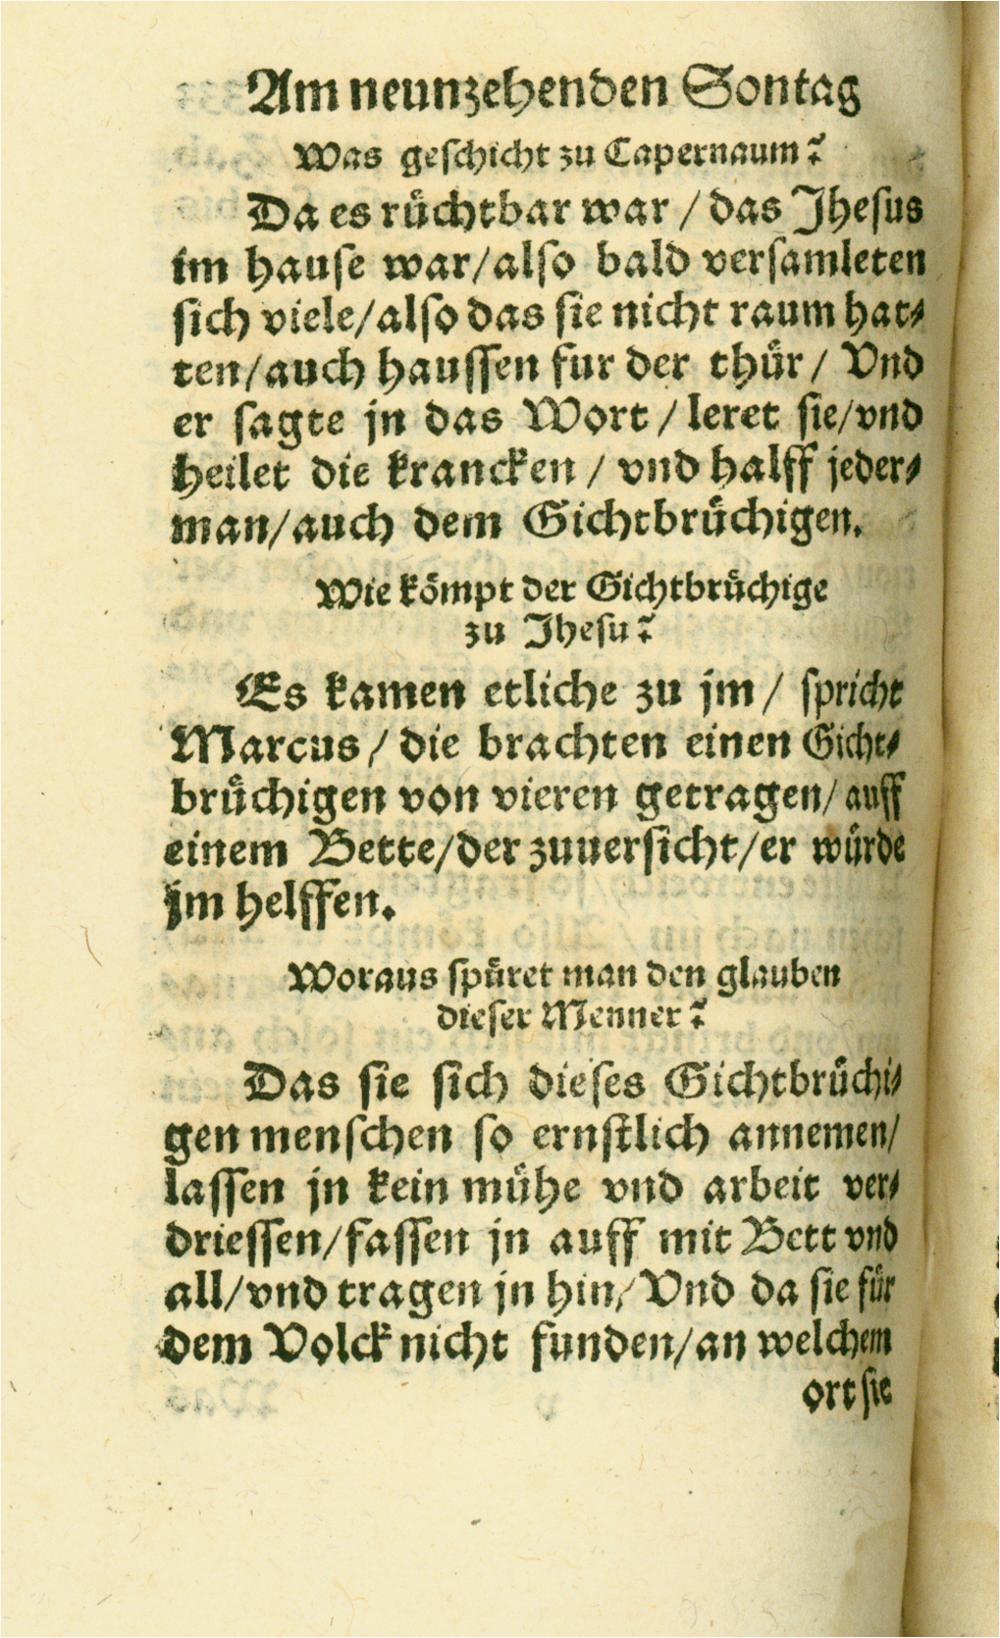 Am neunzehenden Sontag
Was geschicht zu Capernaum?
Da es rüchtbar war / das Jhesus
im hause war/also bald versamleten
sich viele/also das sie nicht raum hat⸗
ten/auch haussen fur der thür / Vnd
er sagte jn das Wort / leret sie/vnd
heilet die krancken / vnd halff jeder⸗
man/auch dem Gichtbrüchigen.
Wie kömpt der Gichtbrüchige
zu Jhesu?
Es kamen etliche zu jm / spricht
Marcus / die brachten einen Gicht⸗
brüchigen von vieren getragen/ auff
einem Bette/der zuuersicht/er würde
jm helffen.
Woraus spüret man den glauben
dieser Menner?
Das sie sich dieses Gichtbrüchi⸗
gen menschen so ernstlich annemen/
lassen jn kein mühe vnd arbeit ver⸗
driessen/fassen jn auff mit Bett vnd
all/vnd tragen jn hin/ Vnd da sie für
dem Volck nicht funden/an welchem
ort sie